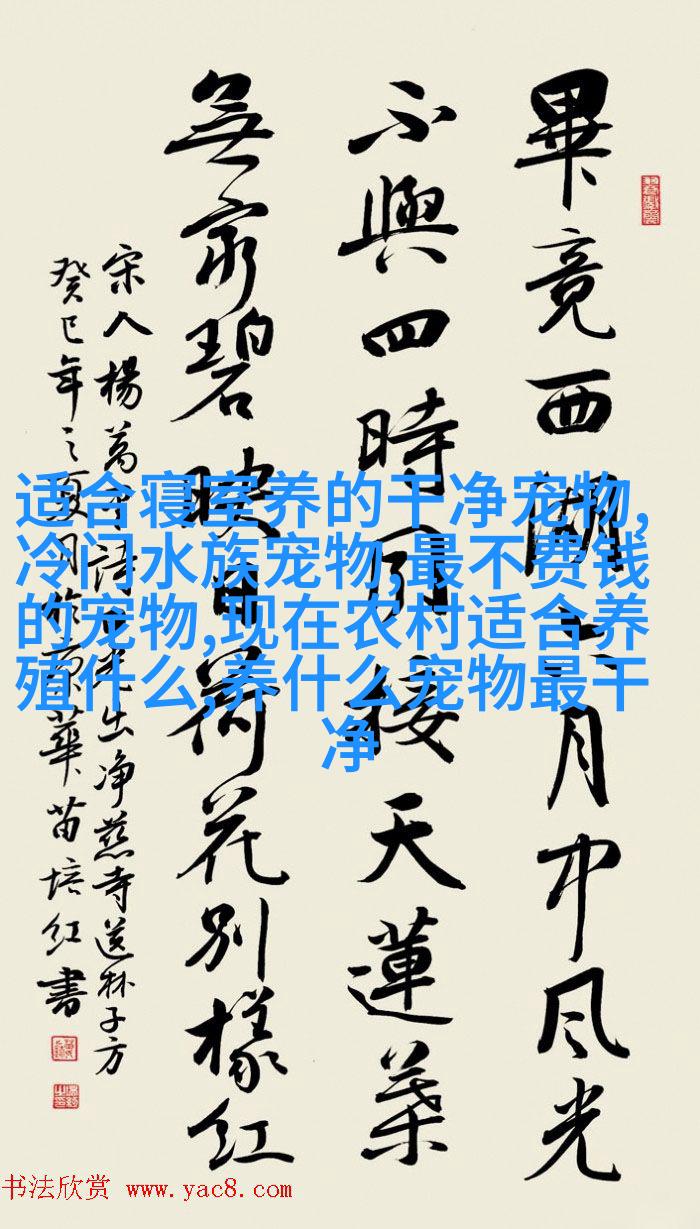 畢竟西湖六月中风光
不與四時同接天蓮葉
無窮碧映日荷花別樣红
宋人楊萬里詩曉出净慈寺送林子方
癸巳年之夏月於京華苗培红書
适合寝室养的干净宠物,
冷门水族宠物,最不费钱
的宠物,现在农村适合养
殖什么,养什么宠物最干
净
书法欣赏 www.yac8.com